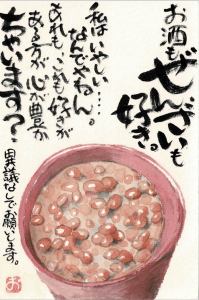 お酒も
ぜんざいも
好き。
私はいやしい…
なんでやねん。
あれも、これも好きが
ある方が心が豊か
ちゃいます?
異議なしでお願いします。
お